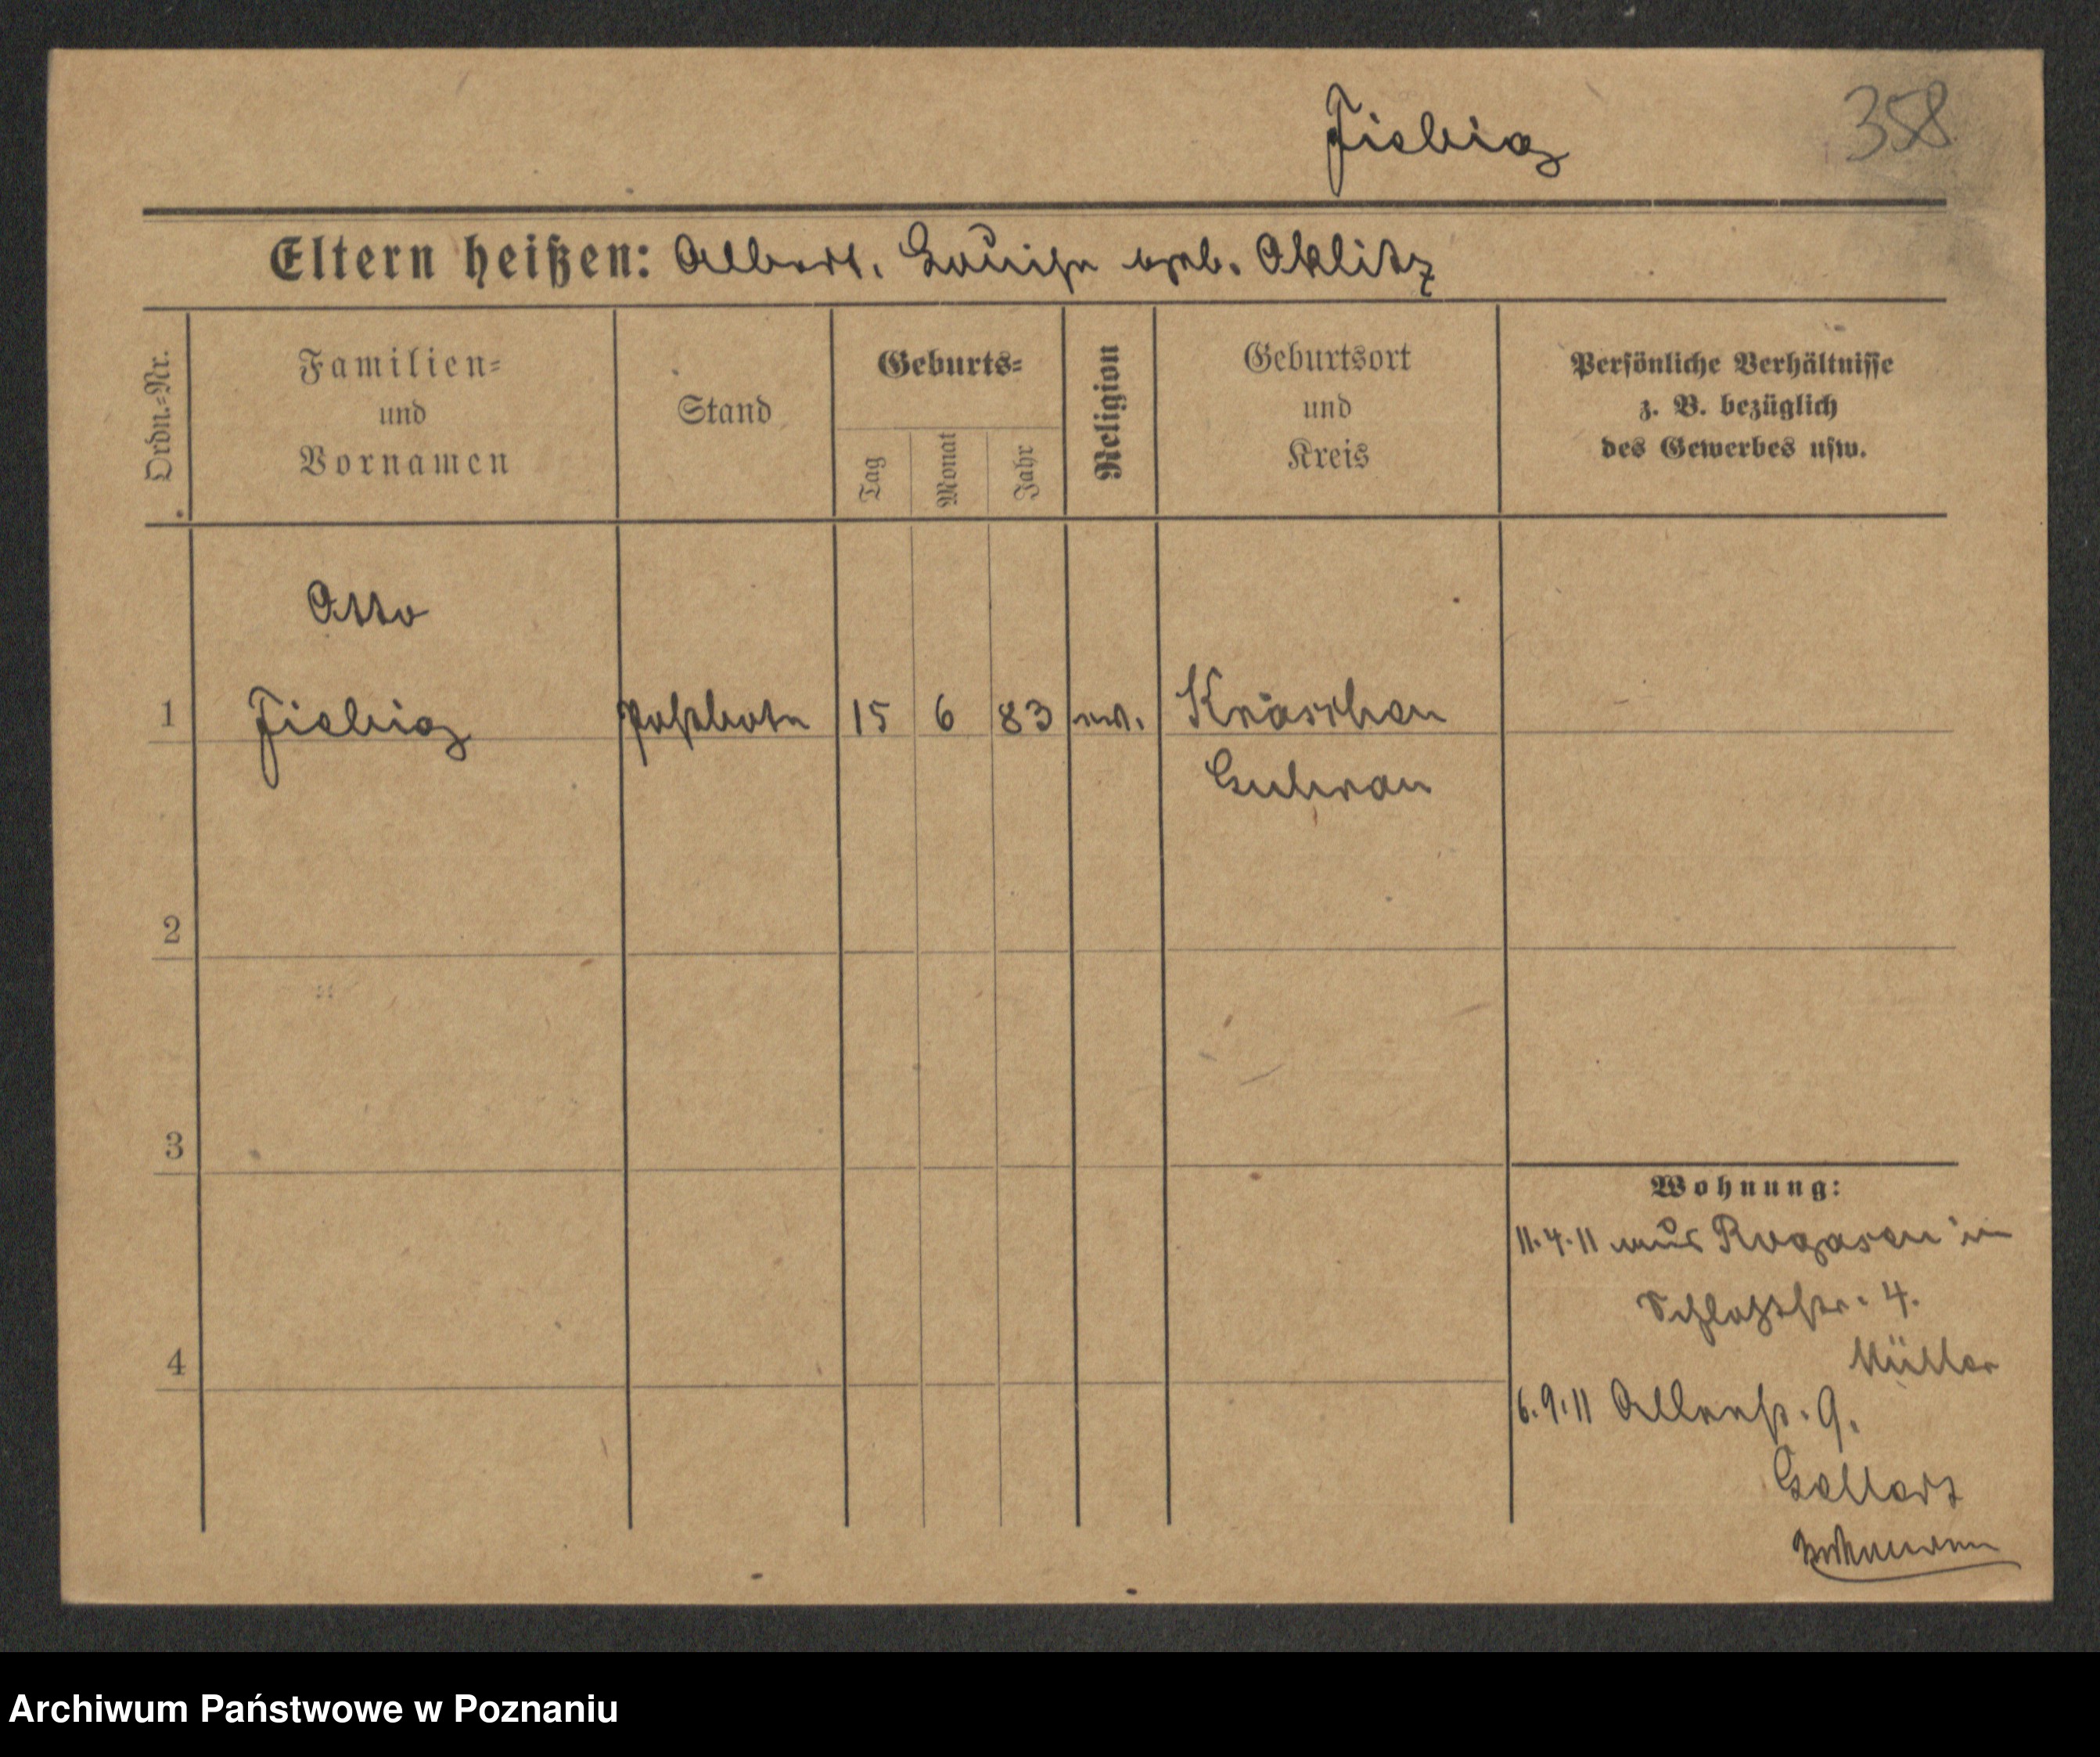 Fiebig 358
Eltern heißen: Albert. Louise geb. Oklitz
Ordn.=Nr.
Familien=
und
Vornamen
Stand
Geburts=
Tag
Monat
Jahr
Religion
Geburtsort
und
Kreis
Persönliche Verhältnisse
z. B. bezüglich
des Gewerbes usw.
Otto
1 Fiebig Postbote 15 6 83 ev. Kraschen
Guhrau
2
3
4
Wohnung:
11.4.11 aus Rogasen in
Schloßstr. 4.
Müller
6.9.11 Allerstr. 9.
Gellert
Archiwum Państwowe w Poznaniu